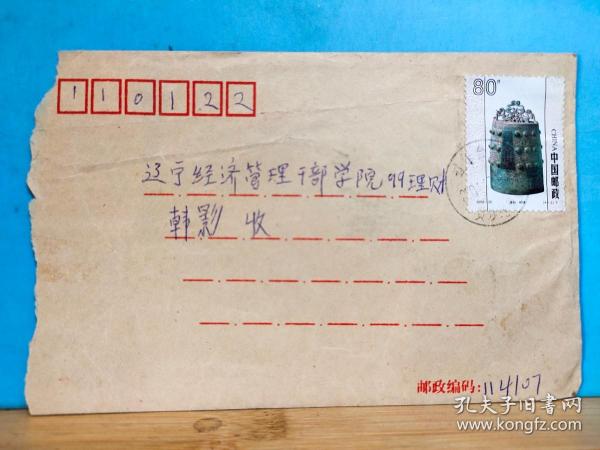 110122
80分
CHINA
中国邮政
辽宁经济管理干部学院99理财
韩影 收
邮政编码:114107
孔夫子旧书网
www.kongfz.com